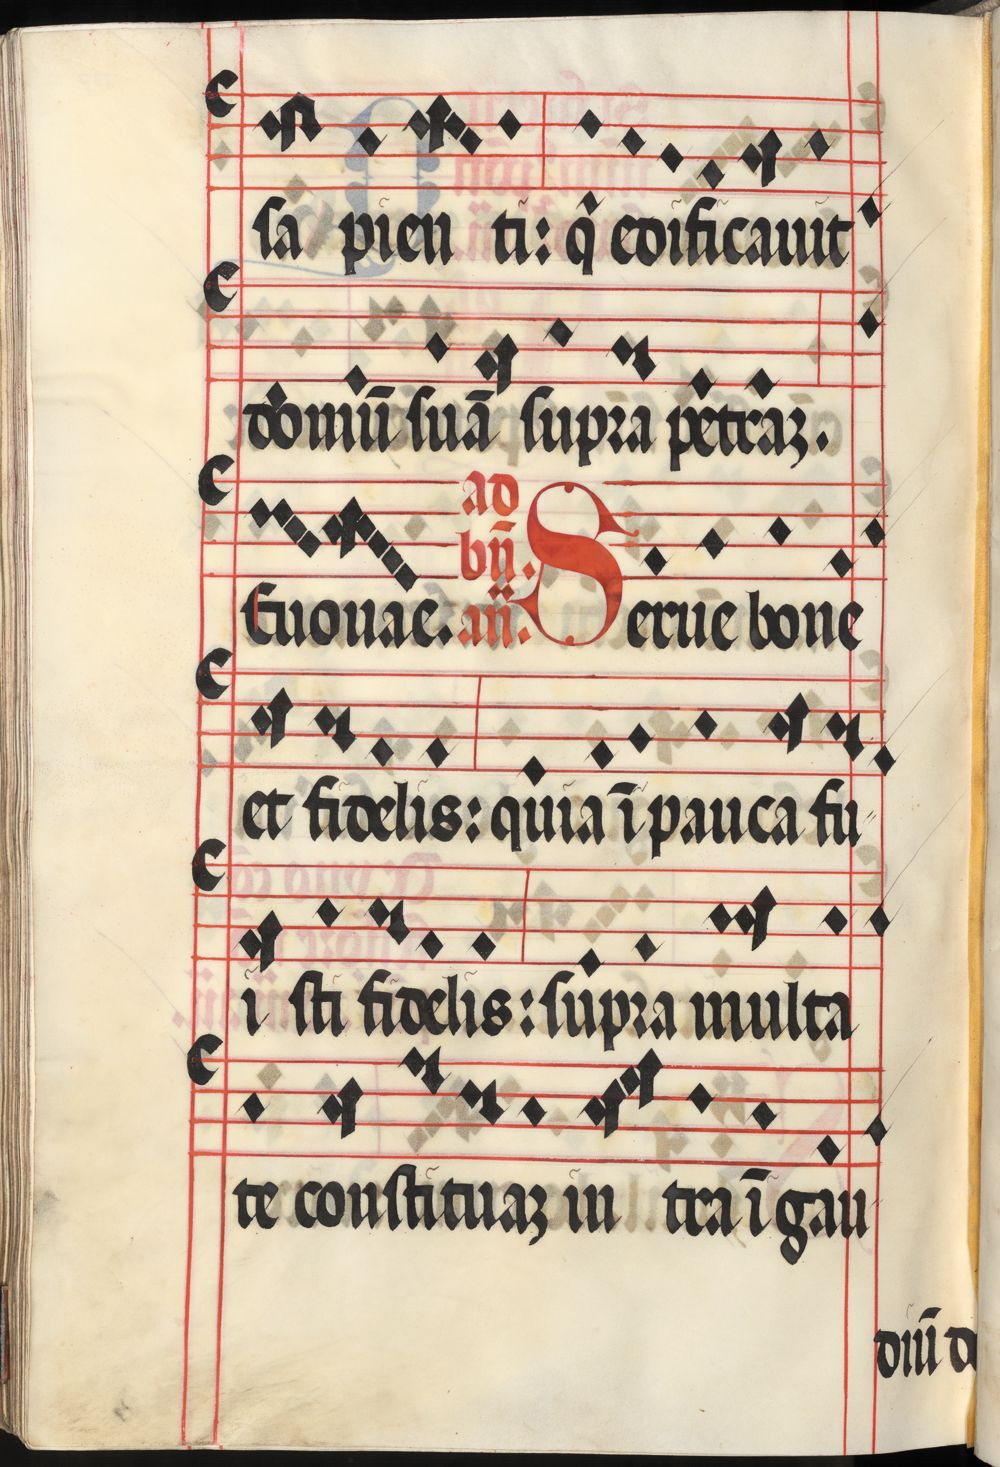 sa pien ti: q̇ edificauit
domū suā supra petraʒ.
Euouae. ad bn̄. an̄. Serue bone
et fidelis: quia ī pauca fu
i sti fidelis: supra multa
te constituaʒ in tra ī gau
diū do